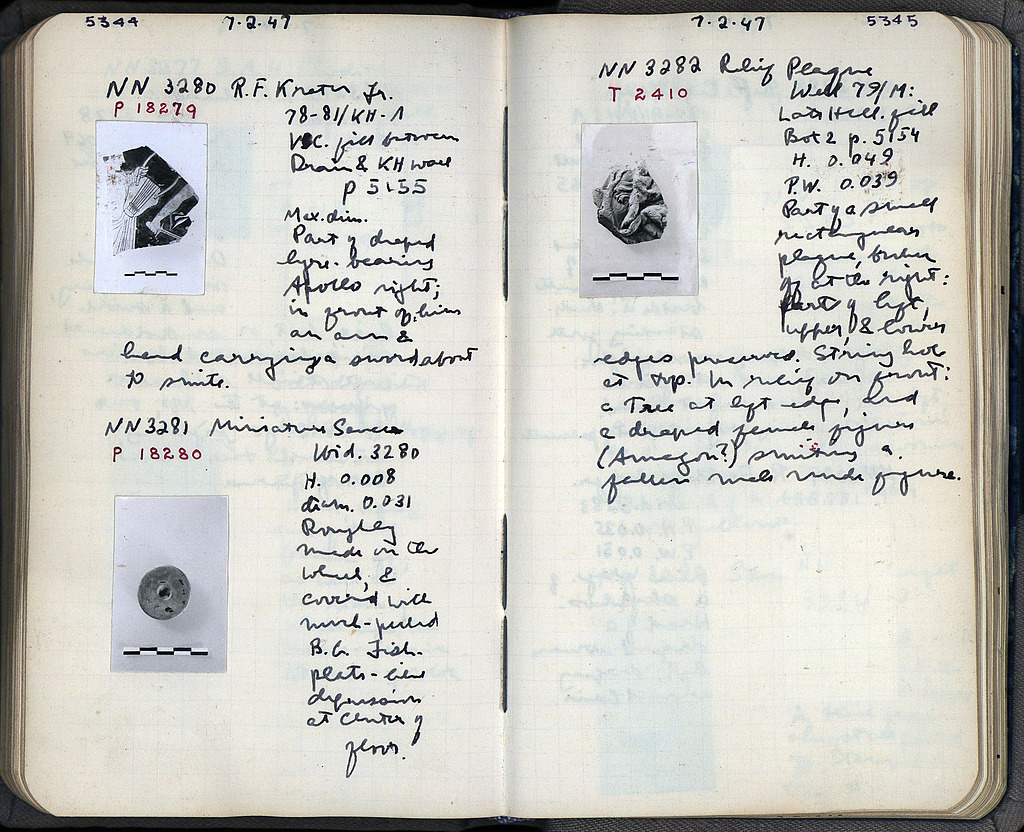 5344
7·2·47
NN 3280 R.F. Krater Fr.
P 18279
78-81/KH-Λ
Vc. fill between
Drain & KH wall
p 5155
Max. dim.
Part of draped
lyre-bearing
Apollo right;
in front of him
an arm &
hand carrying a sword about
to smite.
NN 3281 Miniature Saucer
P 18280
Ibid. 3280
H. 0.008
diam. 0.031
Roughly
made on the
wheel, &
covered with
much-peeled
B.G. Fish-
plate-like
depression
at center of
floor.
7·2·47
5345
NN 3282 Relief Plaque
T 2410
Well 79/M:
Late Hell. fill
Bot 2 p. 5154
H. 0.049
P.W. 0.039
Part of a small
rectangular
plaque, broken
off at the right:
Parts of left,
upper, & lower
edges preserved. String hole
at top. In relief on front:
a Tree at left edge, and
a draped female figure
(Amazon?) smiting a
fallen male nude figure.